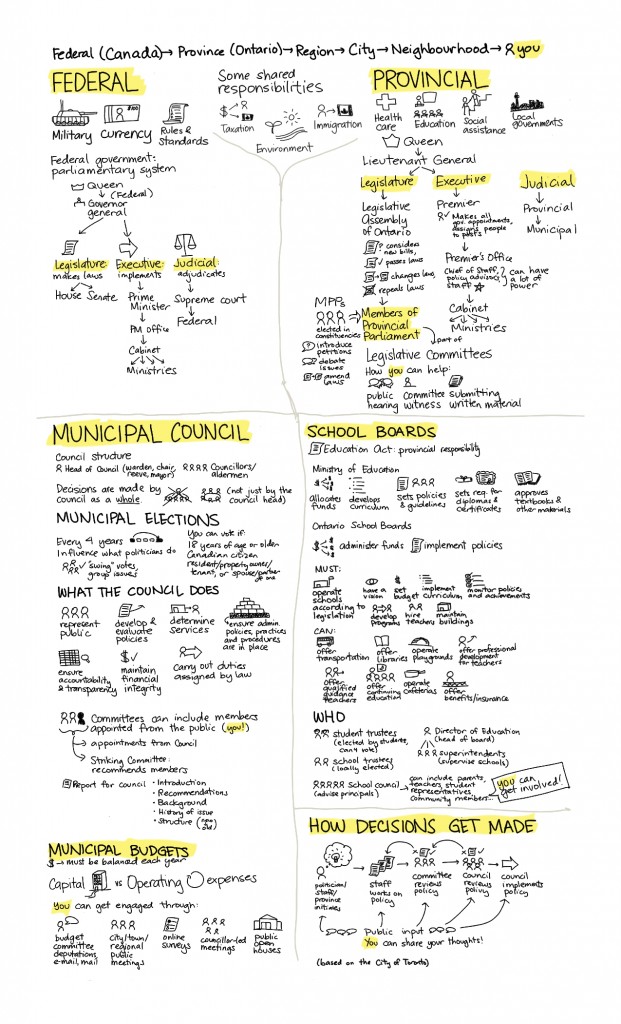 Federal (Canada)→ Province (Ontario)→ Region→ City→ Neighbourhood→ you
FEDERAL
Military
Currency
Rules &
Standards
Federal government:
parliamentary system
Queen
(Federal)
Governor
general
Legislature:
makes laws
Executive:
implements
Judicial:
adjudicates
House Senate
Prime
Minister
PM office
Cabinet
Ministries
Supreme court
Federal
Some shared
responsibilities
Taxation
Environment
Immigration
PROVINCIAL
Health
care
Education
Social
assistance
Local
governments
Queen
Lieutenant General
Legislature
Legislative
Assembly
of Ontario
? considers
new bills,
passes laws
changes laws
repeals laws
Executive
Premier
Makes all
gov. appointments,
assigns people
to posts
Premier's Office
Chief of Staff,
policy advisors,
staff
can have
a lot of
power
Cabinet
Ministries
Judicial
Provincial
Municipal
MPPs
elected in
constituencies
introduce
petitions
debate
issues
amend
laws
Members of
Provincial
Parliament
part of
Legislative Committees
How you can help:
public
hearing
committee
witness
submitting
written material
MUNICIPAL COUNCIL
Council structure
Head of Council (warden, chair,
reeve, mayor)
Councillors/
aldermen
Decisions are made by
council as a whole
(not just by the
council head)
MUNICIPAL ELECTIONS
Every 4 years
Influence what politicians do
"swing" votes,
group issues
You can vote if:
18 years of age or older
Canadian citizen
resident/property owner/
tenant, or spouse/partner
of one
WHAT THE COUNCIL DOES
represent
public
develop &
evaluate
policies
determine
services
ensure admin.
policies, practices
and procedures
are in place
ensure
accountability
& transparency
maintain
financial
integrity
carry out duties
assigned by law
Committees can include members
appointed from the public (you!)
appointments from Council
Striking Committee:
recommends members
Report for council
• Introduction
• Recommendations
• Background
• History of issue
• Structure (new
old)
MUNICIPAL BUDGETS
$→ must be balanced each year
Capital vs Operating expenses
You can get engaged through:
budget
committee
deputations,
e-mail, mail
city/town/
regional
public
meetings
online
surveys
councillor-led
meetings
public
open
houses
SCHOOL BOARDS
Education Act: provincial responsibility
Ministry of Education
allocates
funds
develops
curriculum
sets policies
& guidelines
sets req. for
diplomas &
certificates
approves
textbooks &
other materials
Ontario School Boards
administer funds
implement policies
MUST:
operate
schools
according to
legislation
have a
vision
set
budget
implement
curriculum
monitor policies
and achievements
develop
programs
hire
teachers
maintain
buildings
CAN:
offer
transportation
offer
libraries
operate
playgrounds
offer professional
development
for teachers
offer
qualified
guidance
teachers
offer
continuing
education
operate
cafeterias
offer
benefits/insurance
WHO
student trustees
(elected by students,
can't vote)
school trustees
(locally elected)
Director of Education
(head of board)
superintendents
(supervise schools)
school council
(advise principals)
can include parents,
teachers, student
representatives,
community members...
you can
get involved!
HOW DECISIONS GET MADE
politician/
staff/
province
initiates
staff
works on
policy
committee
reviews
policy
council
reviews
policy
council
implements
policy
Public input
You can share your thoughts!
(based on the City of Toronto)